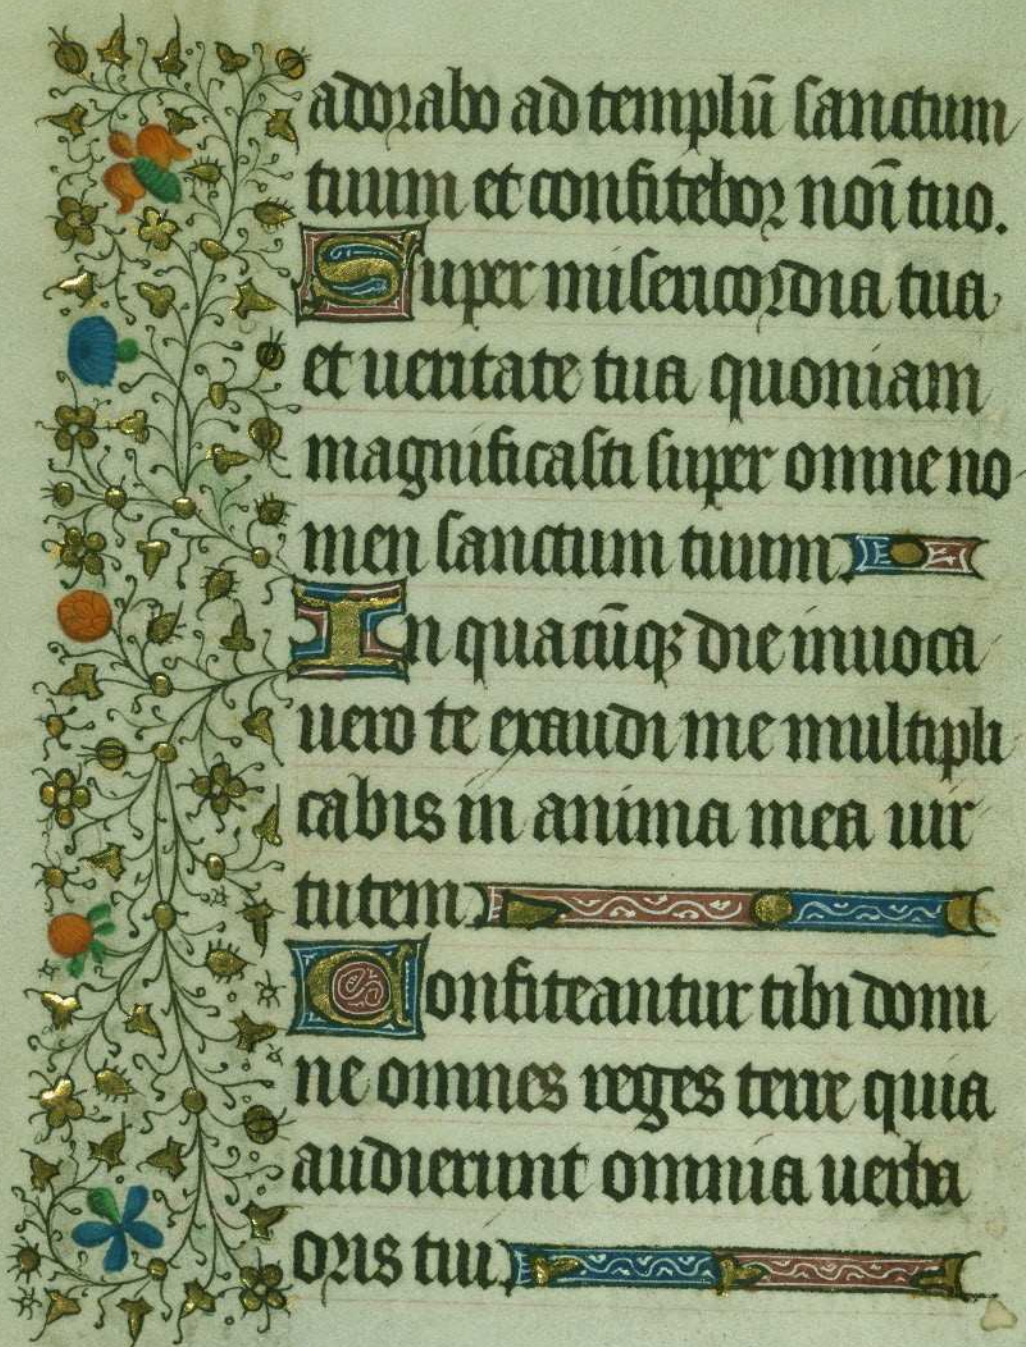 adorabo ad templū sanctum
tuum et confitebor noī tuo.
Super misericordia tua
et ueritate tua quoniam
magnificasti super omne no
men sanctum tuum.
In quacūq; die inuoca
uero te exaudi me multipli
cabis in anima mea uir
tutem.
Confiteantur tibi domi
ne omnes reges terre quia
audierunt omnia uerba
oris tui.